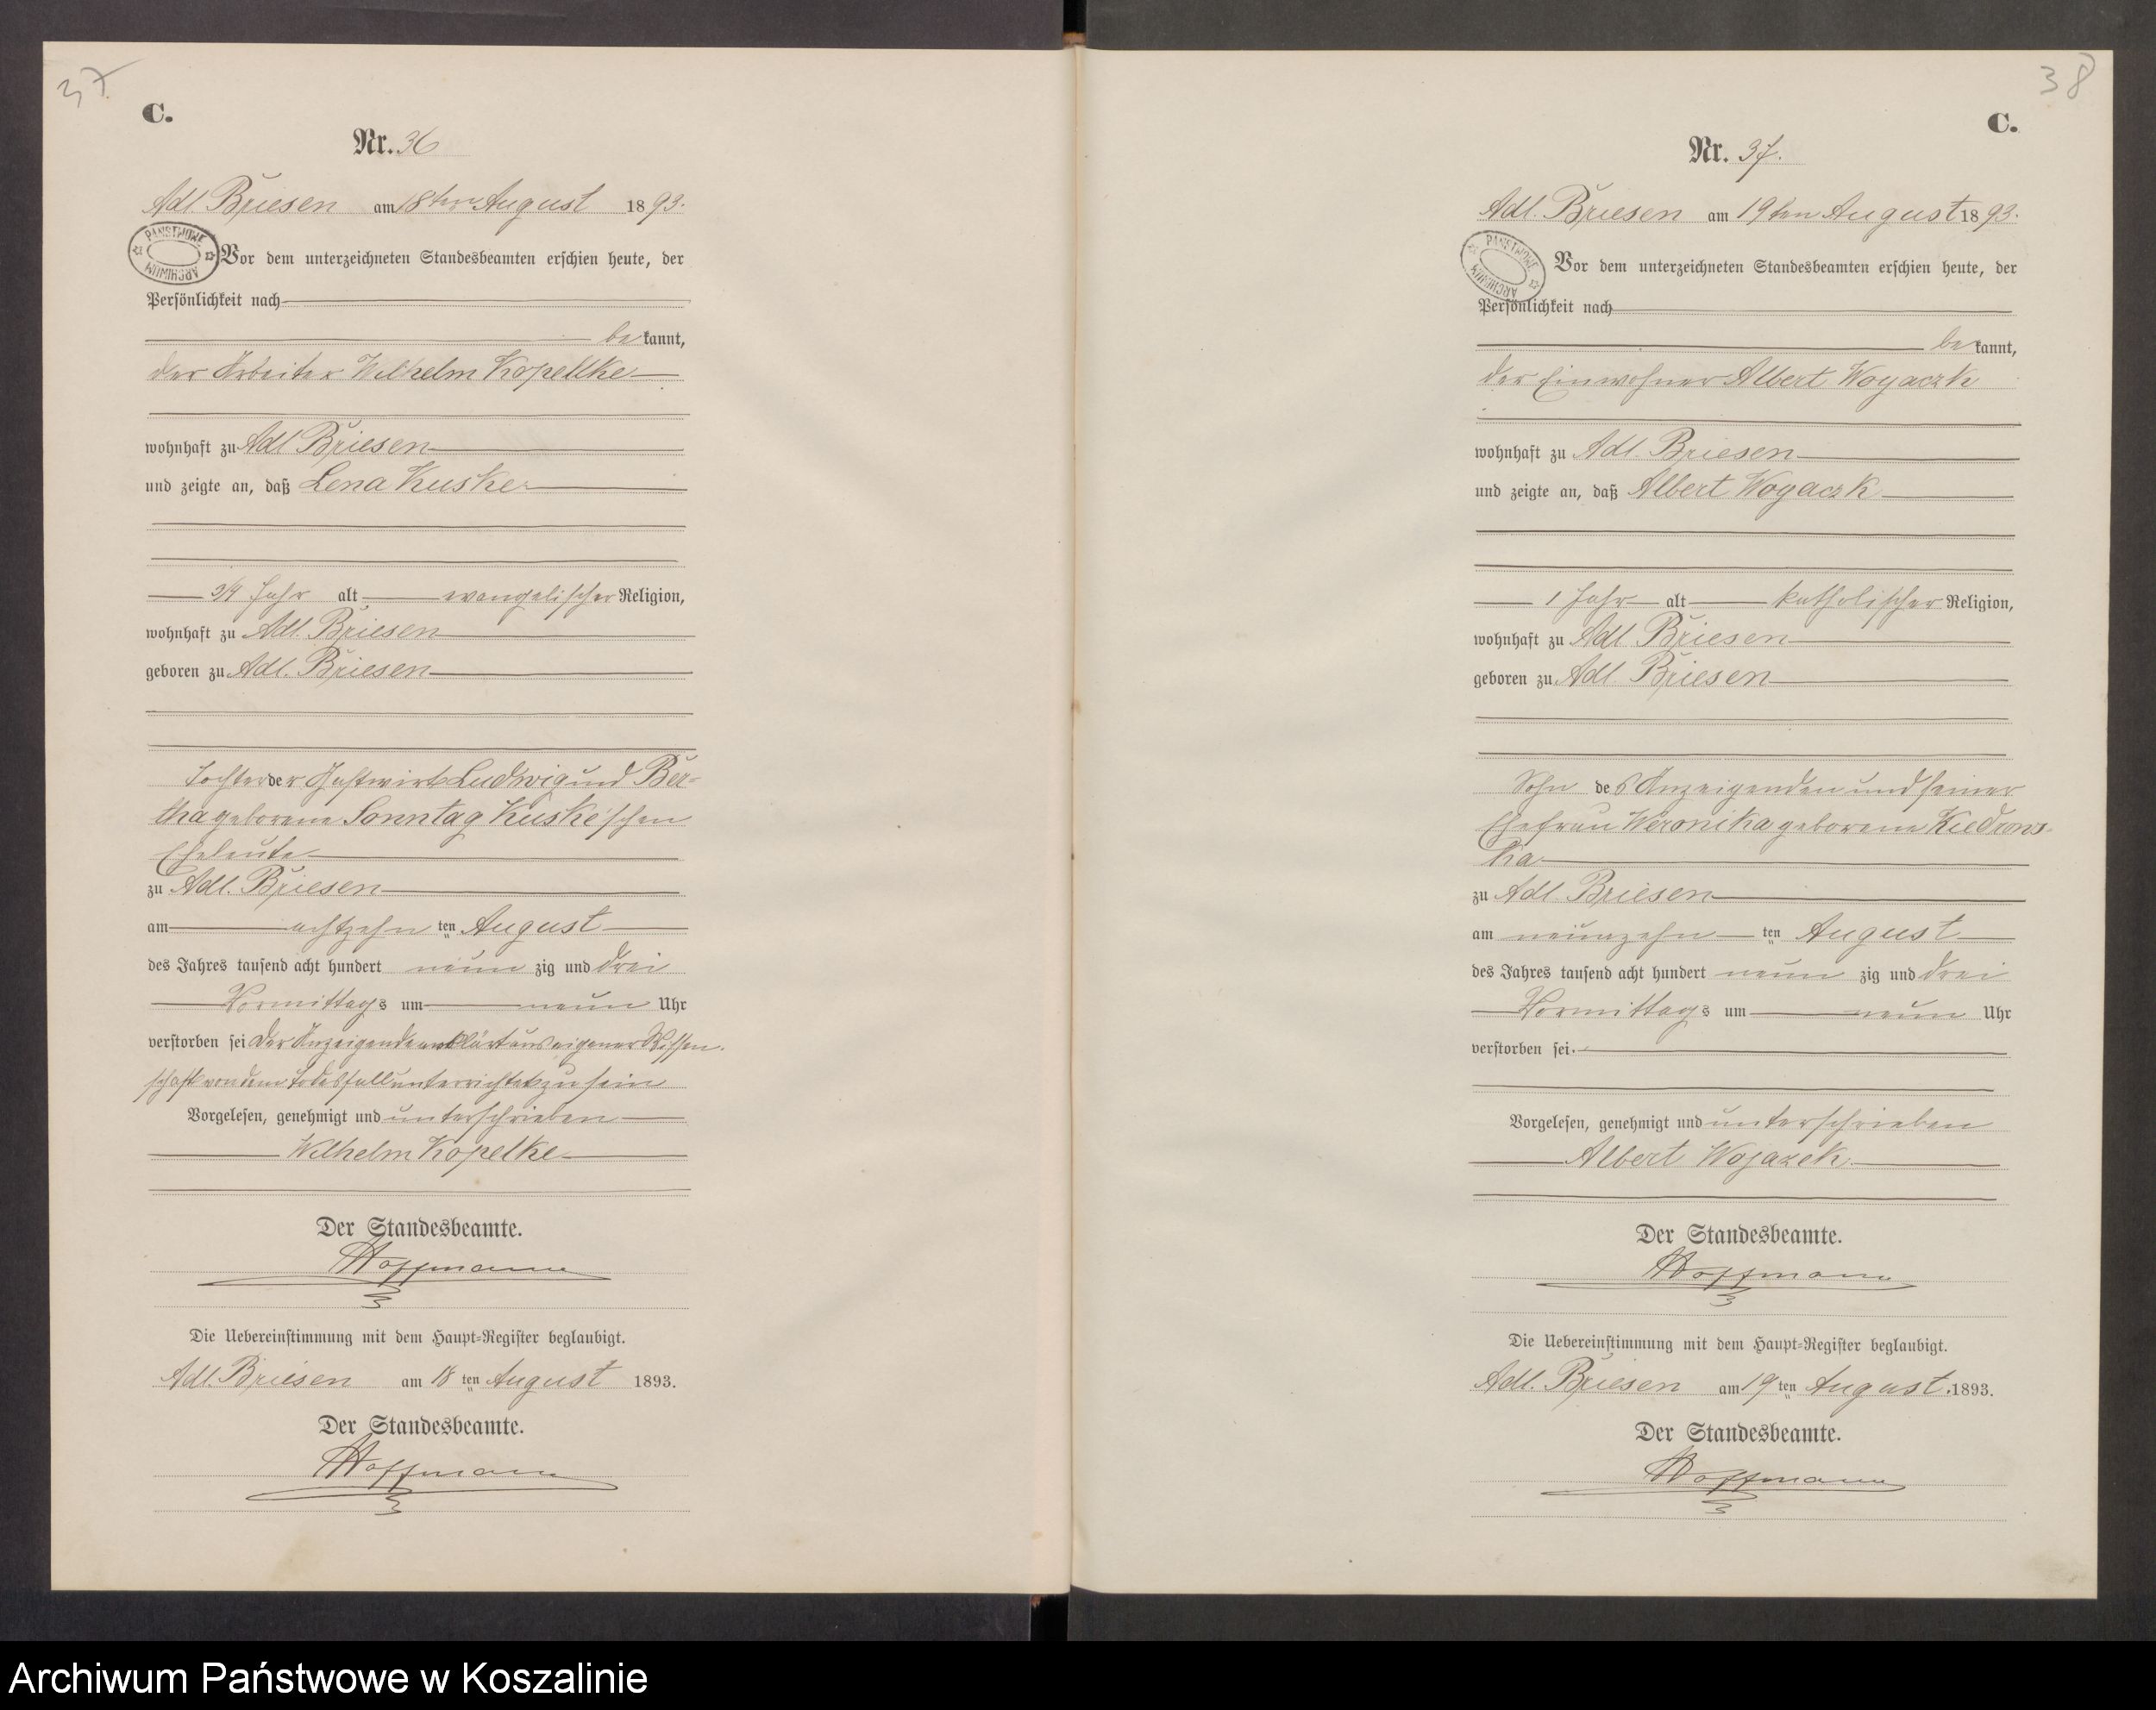 37
C.
Nr. 36
Adl Briesen am 18ten August 1893.
PAŃSTWOWE ARCHIWUM
Vor dem unterzeichneten Standesbeamten erschien heute, der
Persönlichkeit nach
bekannt,
der Arbeiter Wilhelm Kopellke
wohnhaft zu Adl Briesen
und zeigte an, daß Lena Kuske
3/4 Jahr alt evangelischer Religion,
wohnhaft zu Adl. Briesen
geboren zu Adl. Briesen
Tochter der Gastwirt Ludwig und Ber-
tha geborene Sonntag Kuske'schen
Eheleute
zu Adl. Briesen
am achtzehn ten August
des Jahres tausend acht hundert neun zig und drei
Vormittags um neun Uhr
verstorben sei Der Anzeigende erklärt aus eigener Wissen-
schaft von dem Todesfall unterrichtet zu sein
Vorgelesen, genehmigt und unterschrieben
Wilhelm Kopelke
Der Standesbeamte.
Hoffmann
Die Uebereinstimmung mit dem Haupt-Register beglaubigt.
Adl. Briesen am 18 ten August 1893.
Der Standesbeamte.
Hoffmann
38
C.
Nr. 37.
Adl. Briesen am 19ten August 1893.
PAŃSTWOWE ARCHIWUM
Vor dem unterzeichneten Standesbeamten erschien heute, der
Persönlichkeit nach
bekannt,
der Einwohner Albert Woyaczk
wohnhaft zu Adl. Briesen
und zeigte an, daß Albert Woyaczk
1 Jahr alt katholischer Religion,
wohnhaft zu Adl Briesen
geboren zu Adl. Briesen
Sohn des Anzeigenden und seiner
Ehefrau Weronika geborene Kiedrows-
ka
zu Adl. Briesen
am neunzehn ten August
des Jahres tausend acht hundert neun zig und drei
Vormittags um neun Uhr
verstorben sei.
Vorgelesen, genehmigt und unterschrieben
Albert Wojazek
Der Standesbeamte.
Hoffmann
Die Uebereinstimmung mit dem Haupt-Register beglaubigt.
Adl. Briesen am 19 ten August. 1893.
Der Standesbeamte.
Hoffmann
Archiwum Państwowe w Koszalinie